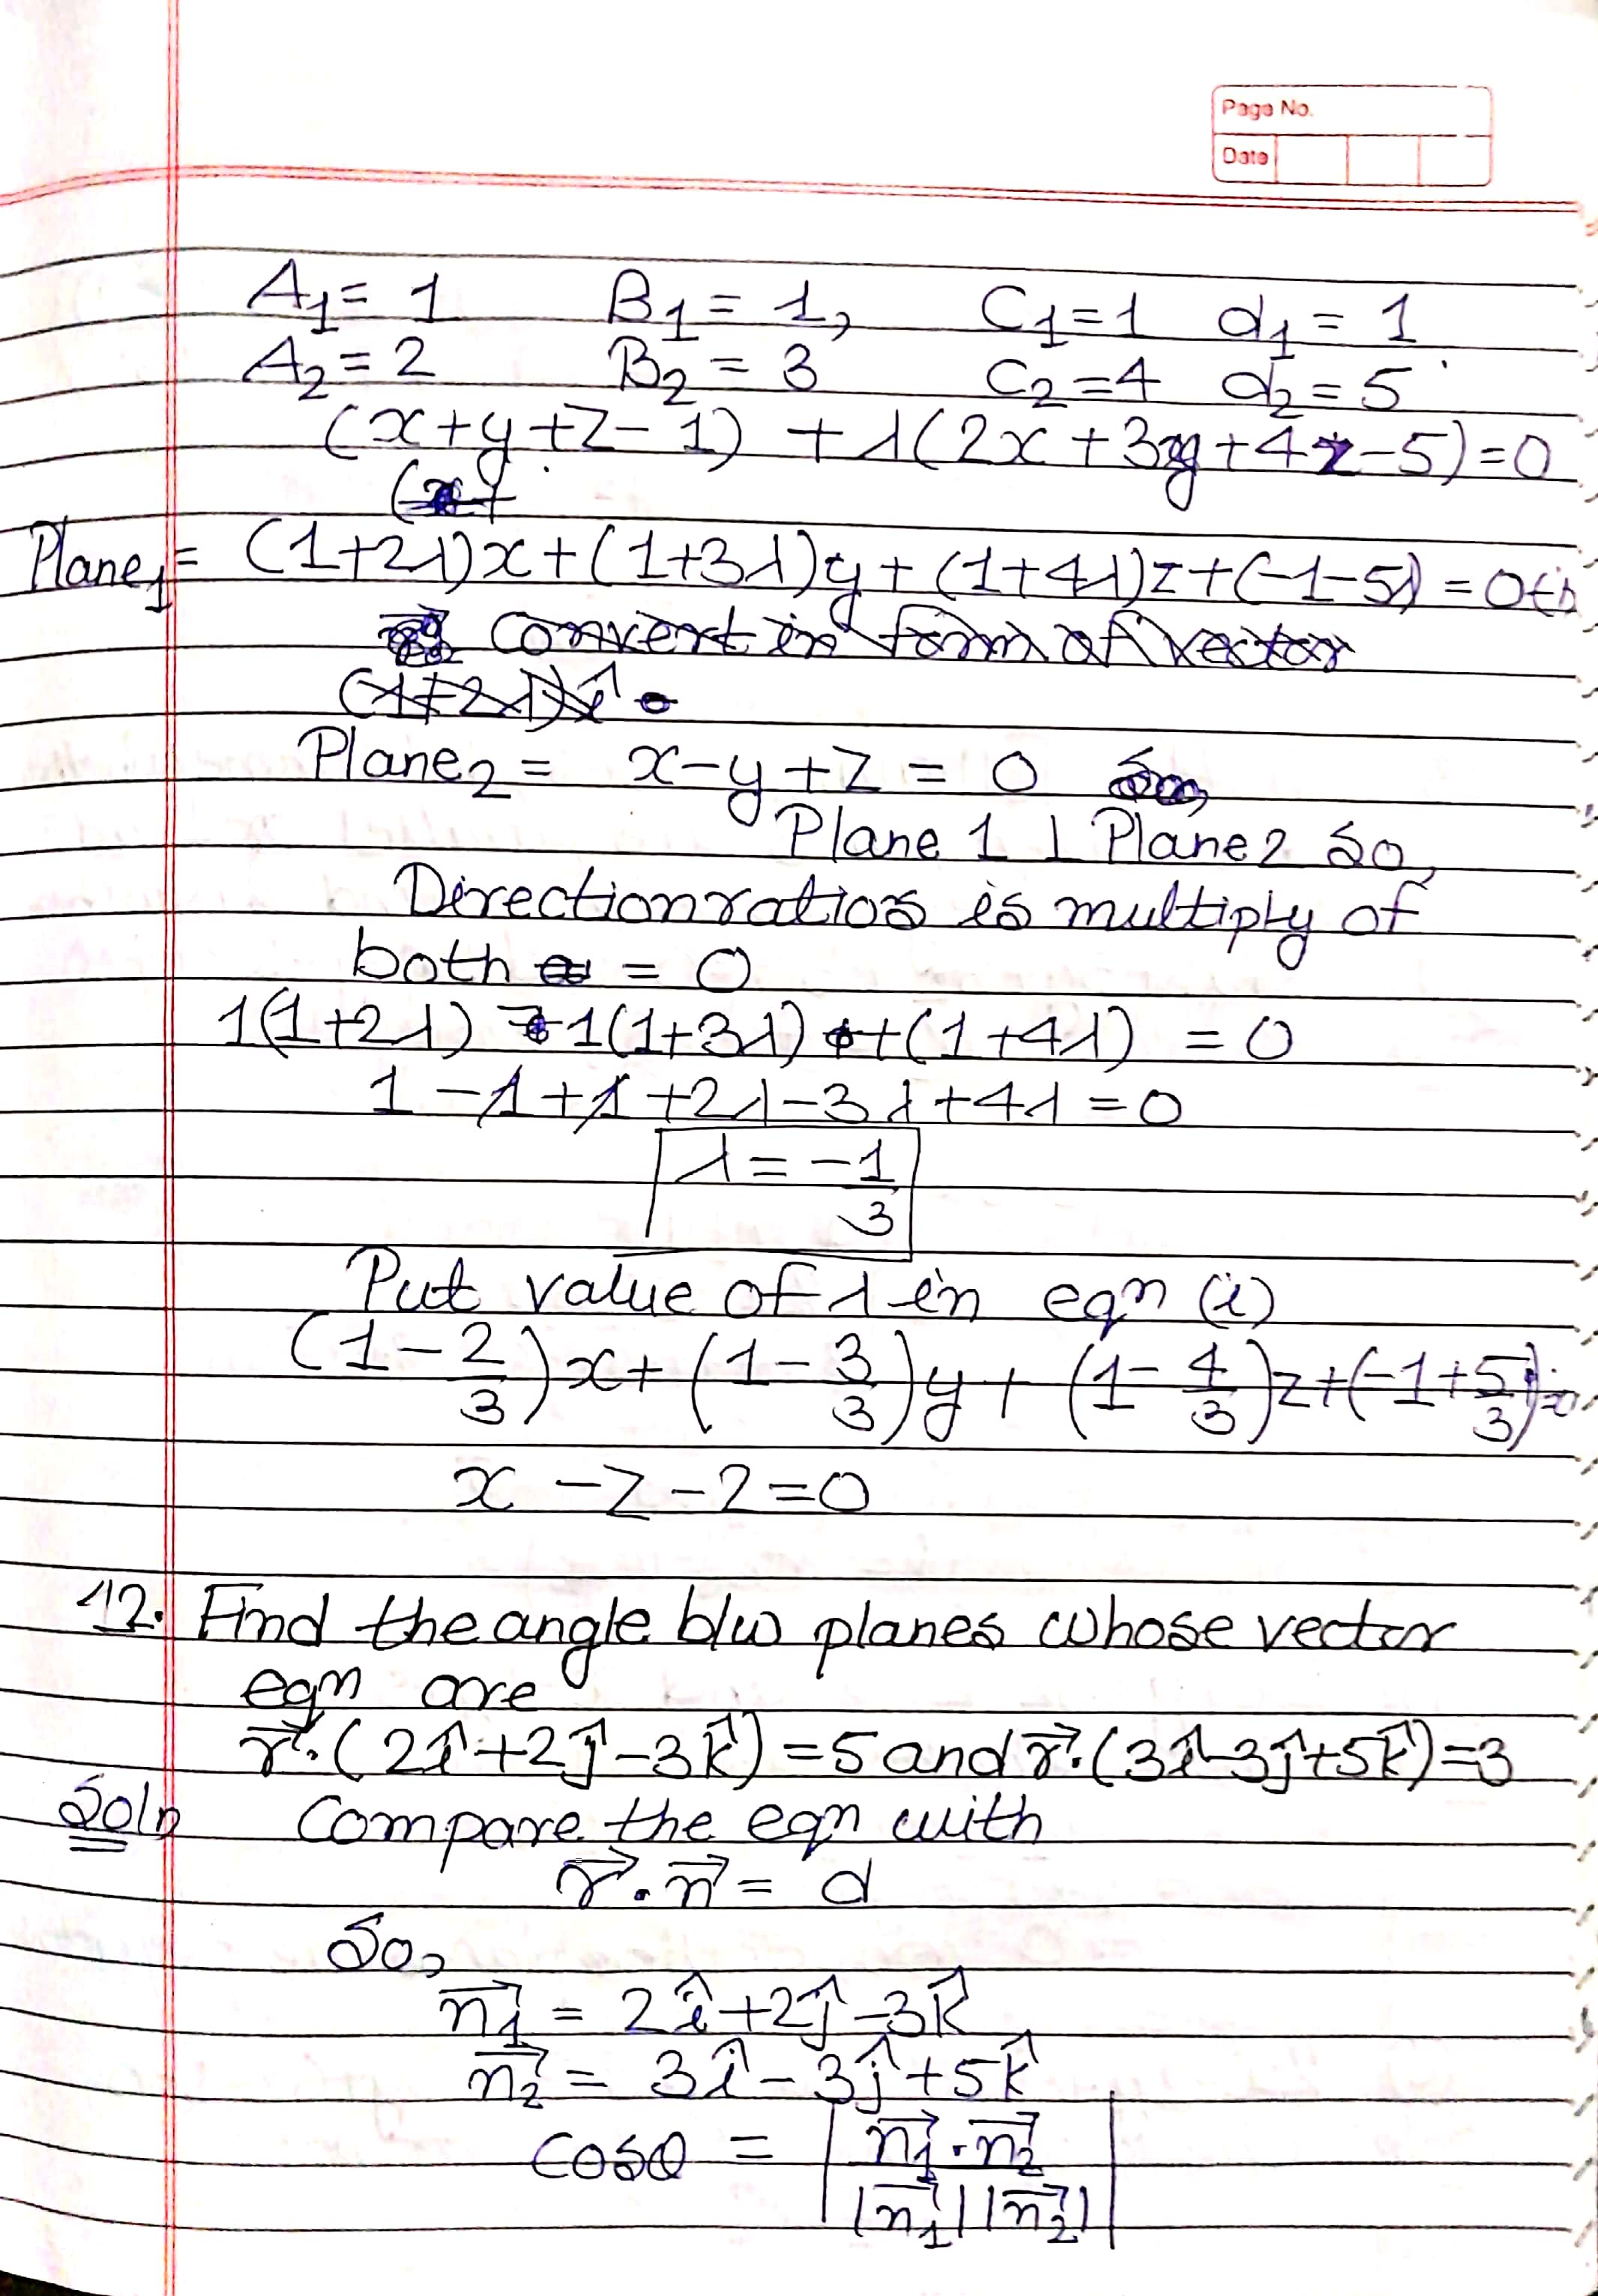 Page No.
Date
A₁ = 1 B₁ = 1, C₁ = 1 d₁ = 1
A₂ = 2 B₂ = 3 C₂ = 4 d₂ = 5
(x+y+z-1) + λ(2x+3y+4z-5)=0
Plane₁ = (1+2λ)x+(1+3λ)y+(1+4λ)z+(-1-5λ)=0
convert in form of vector
(1+2λ)î
Plane₂ = x-y+z = 0
Plane 1 ⊥ Plane 2 So,
Direction ratios is multiply of
both = 0
1(1+2λ) -1(1+3λ) +(1+4λ) = 0
1 -1+1 +2λ-3λ+4λ=0
λ = -1/3
Put value of λ in eqn (i)
(1-2/3)x+(1-3/3)y+(1-4/3)z+(-1+5/3)=0
x -z -2=0
12. Find the angle b/w planes whose vector
eqn are
r⃗.(2î+2ĵ-3k̂)=5 and r⃗.(3î-3ĵ+5k̂)=3
Soln Compare the eqn with
r⃗.n⃗ = d
So,
n⃗₁ = 2î+2ĵ-3k̂
n⃗₂ = 3î-3ĵ+5k̂
cosθ = |n⃗₁.n⃗₂ / |n⃗₁||n⃗₂||